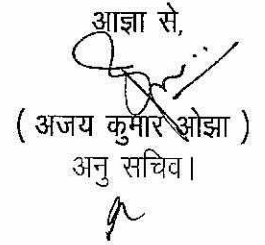 आज्ञा से,
( अजय कुमार ओझा )
अनु सचिव।